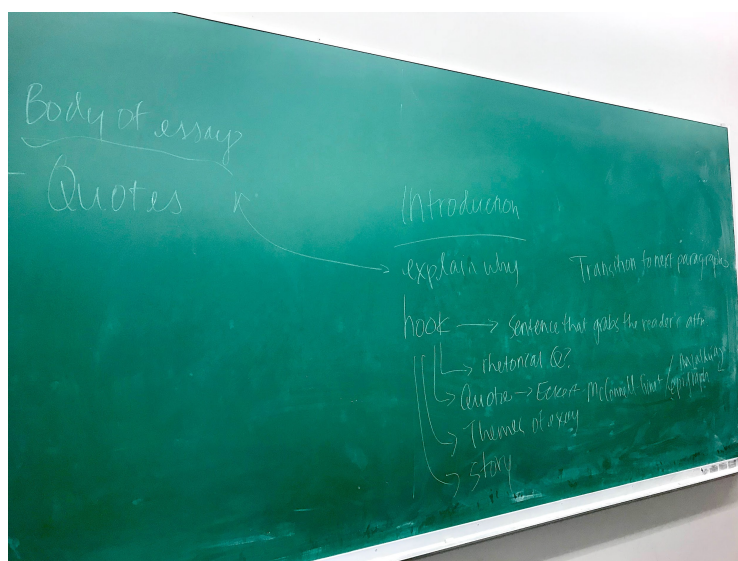 Body of essay
- Quotes
Introduction
explain why
Transition to next paragraphs
hook → sentence that grabs the reader's attn
→ rhetorical Q?
→ Quote → Eckert - McConnell Ginet (epigraph
→ Themes of essay
→ Story